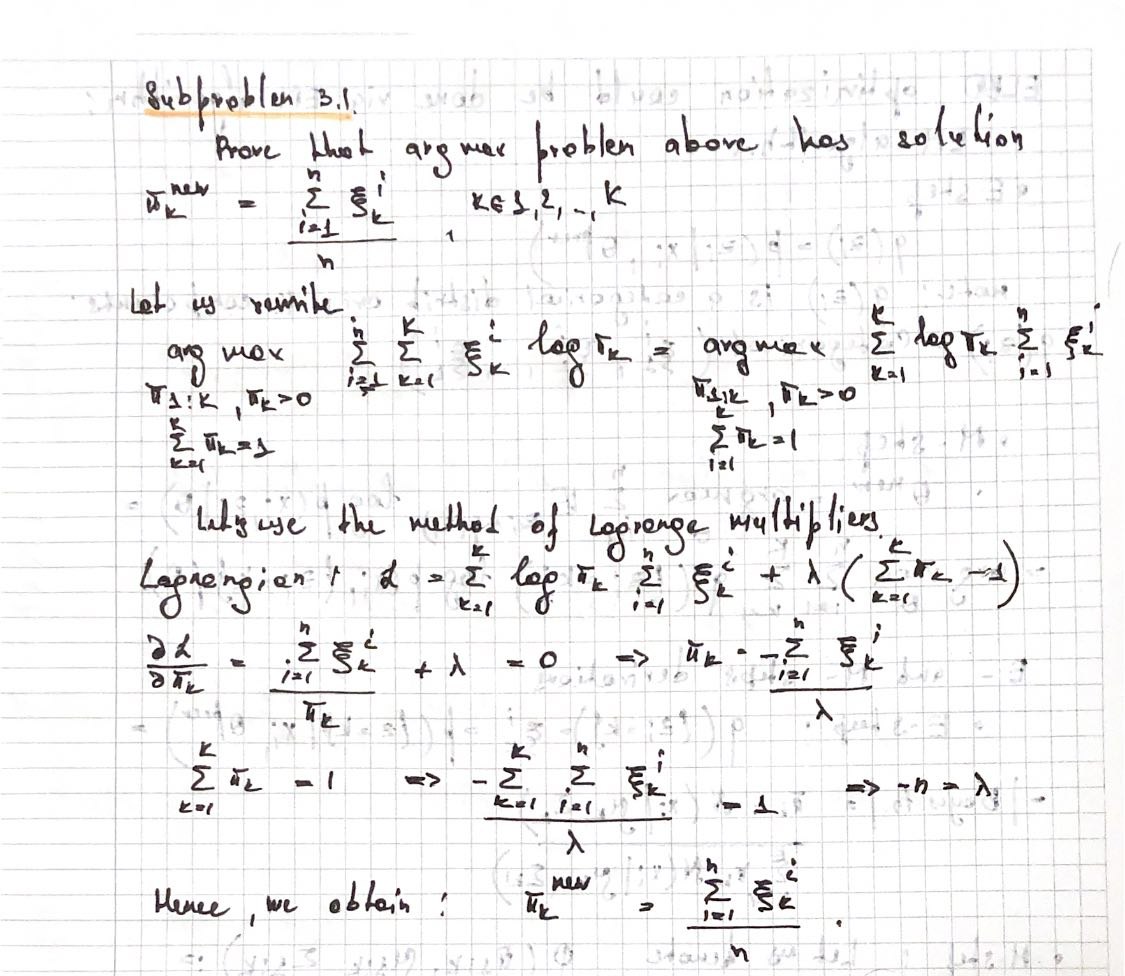 Subproblem 3.1.
Prove that arg max problem above has solution
π_k^{new} = \frac{\sum_{i=1}^{n} ξ_k^i}{n} , k ∈ 1, 2, .., K
Let us rewrite
arg max_{π_{1:K}, π_k>0, \sum_{k=1}^{K} π_k=1} \sum_{i=1}^{n} \sum_{k=1}^{K} ξ_k^i log π_k = arg max_{π_{1:K}, π_k>0, \sum_{i=1}^{K} π_k=1} \sum_{k=1}^{K} log π_k \sum_{i=1}^{n} ξ_k^i
Let's use the method of Lagrange multipliers.
Lagrangian : L = \sum_{k=1}^{K} log π_k · \sum_{i=1}^{n} ξ_k^i + λ ( \sum_{k=1}^{K} π_k - 1 )
\frac{∂L}{∂π_k} = \frac{\sum_{i=1}^{n} ξ_k^i}{π_k} + λ = 0 => π_k = \frac{-\sum_{i=1}^{n} ξ_k^i}{λ}
\sum_{k=1}^{K} π_k = 1 => \frac{-\sum_{k=1}^{K} \sum_{i=1}^{n} ξ_k^i}{λ} = 1 => -n = λ
Hence, we obtain : π_k^{new} = \frac{\sum_{i=1}^{n} ξ_k^i}{n} .